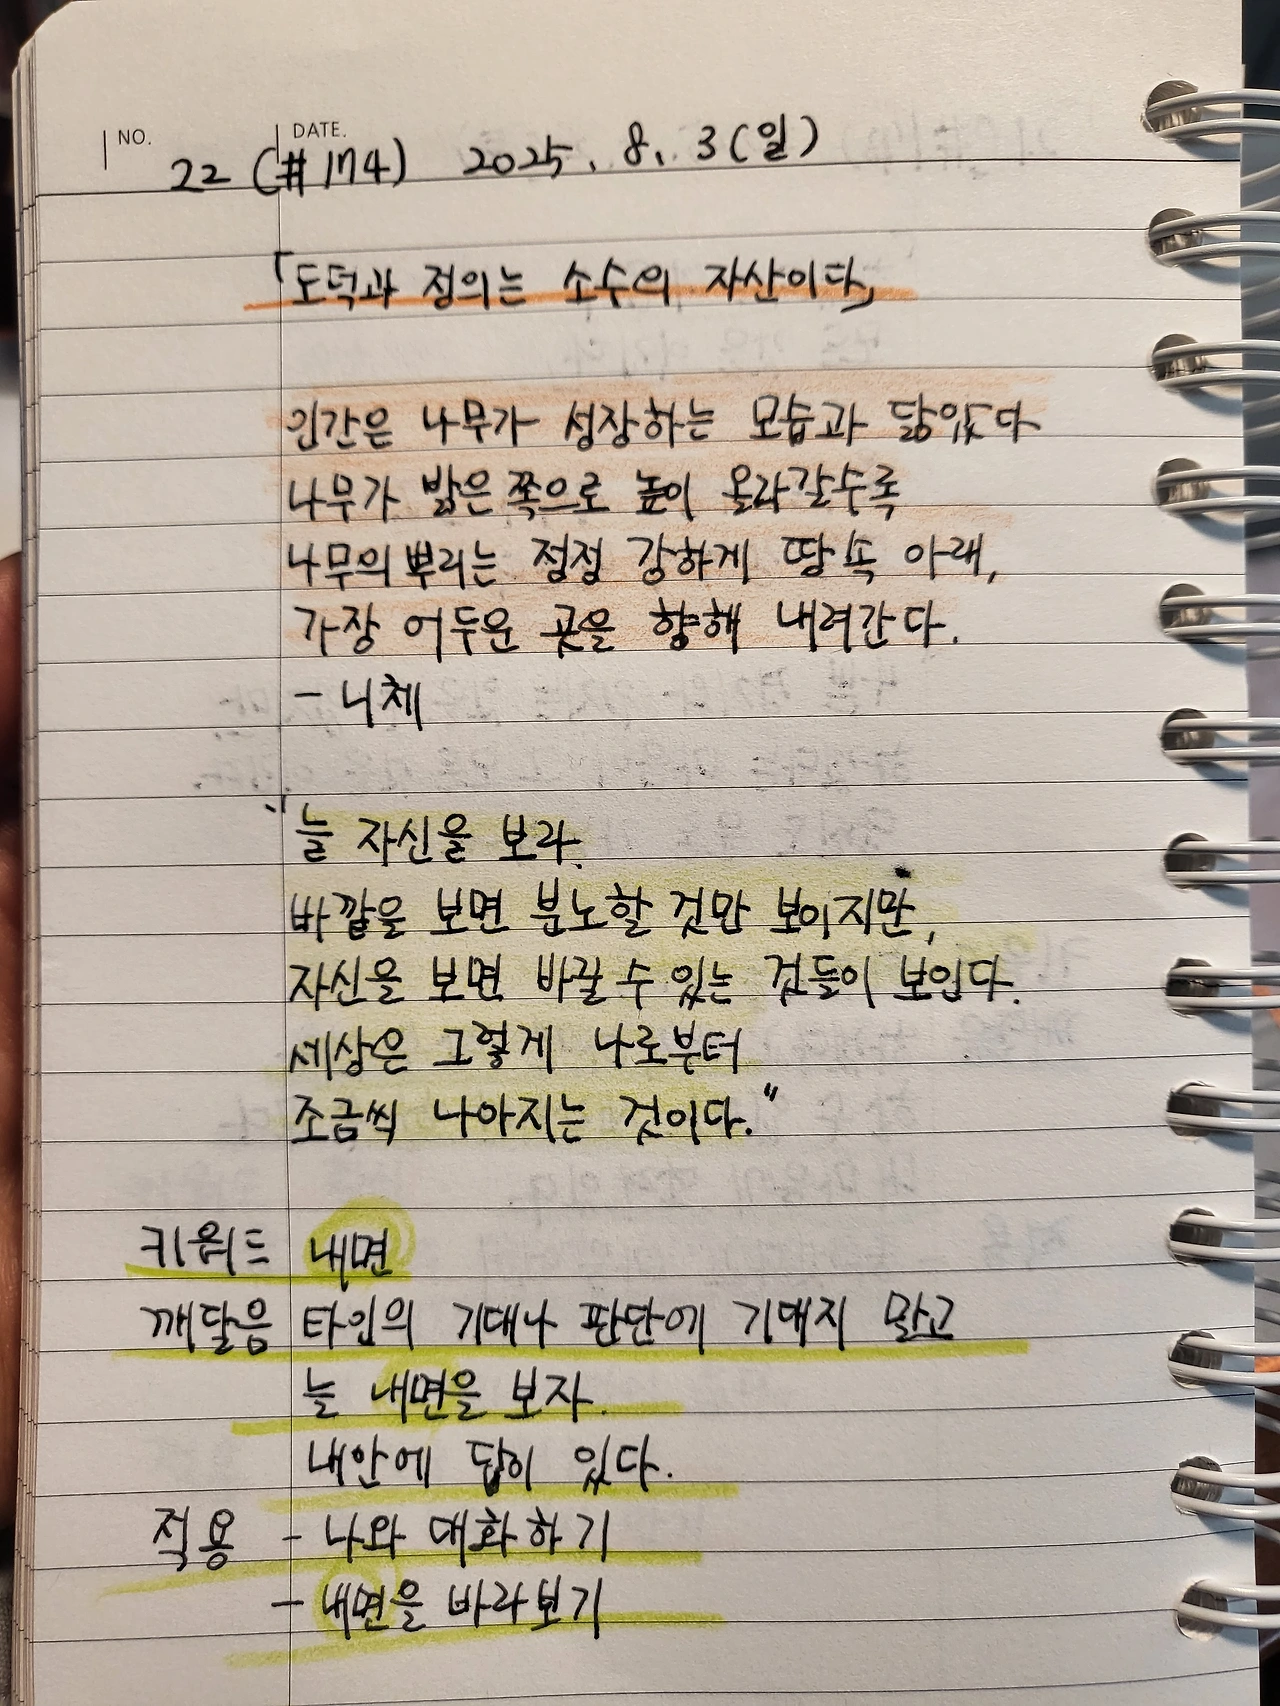 NO.
DATE.
22 (#174) 2025. 8. 3 (일)
「도덕과 정의는 소수의 자산이다」
인간은 나무가 성장하는 모습과 닮았다
나무가 밝은 쪽으로 높이 올라갈수록
나무의 뿌리는 점점 강하게 땅 속 아래,
가장 어두운 곳을 향해 내려간다.
- 니체
"늘 자신을 보라.
바깥을 보면 분노할 것만 보이지만,
자신을 보면 바꿀 수 있는 것들이 보인다.
세상은 그렇게 나로부터
조금씩 나아지는 것이다."
키워드 내면
깨달음 타인의 기대나 판단에 기대지 말고
늘 내면을 보자.
내안에 답이 있다.
적용 - 나와 대화하기
- 내면을 바라보기